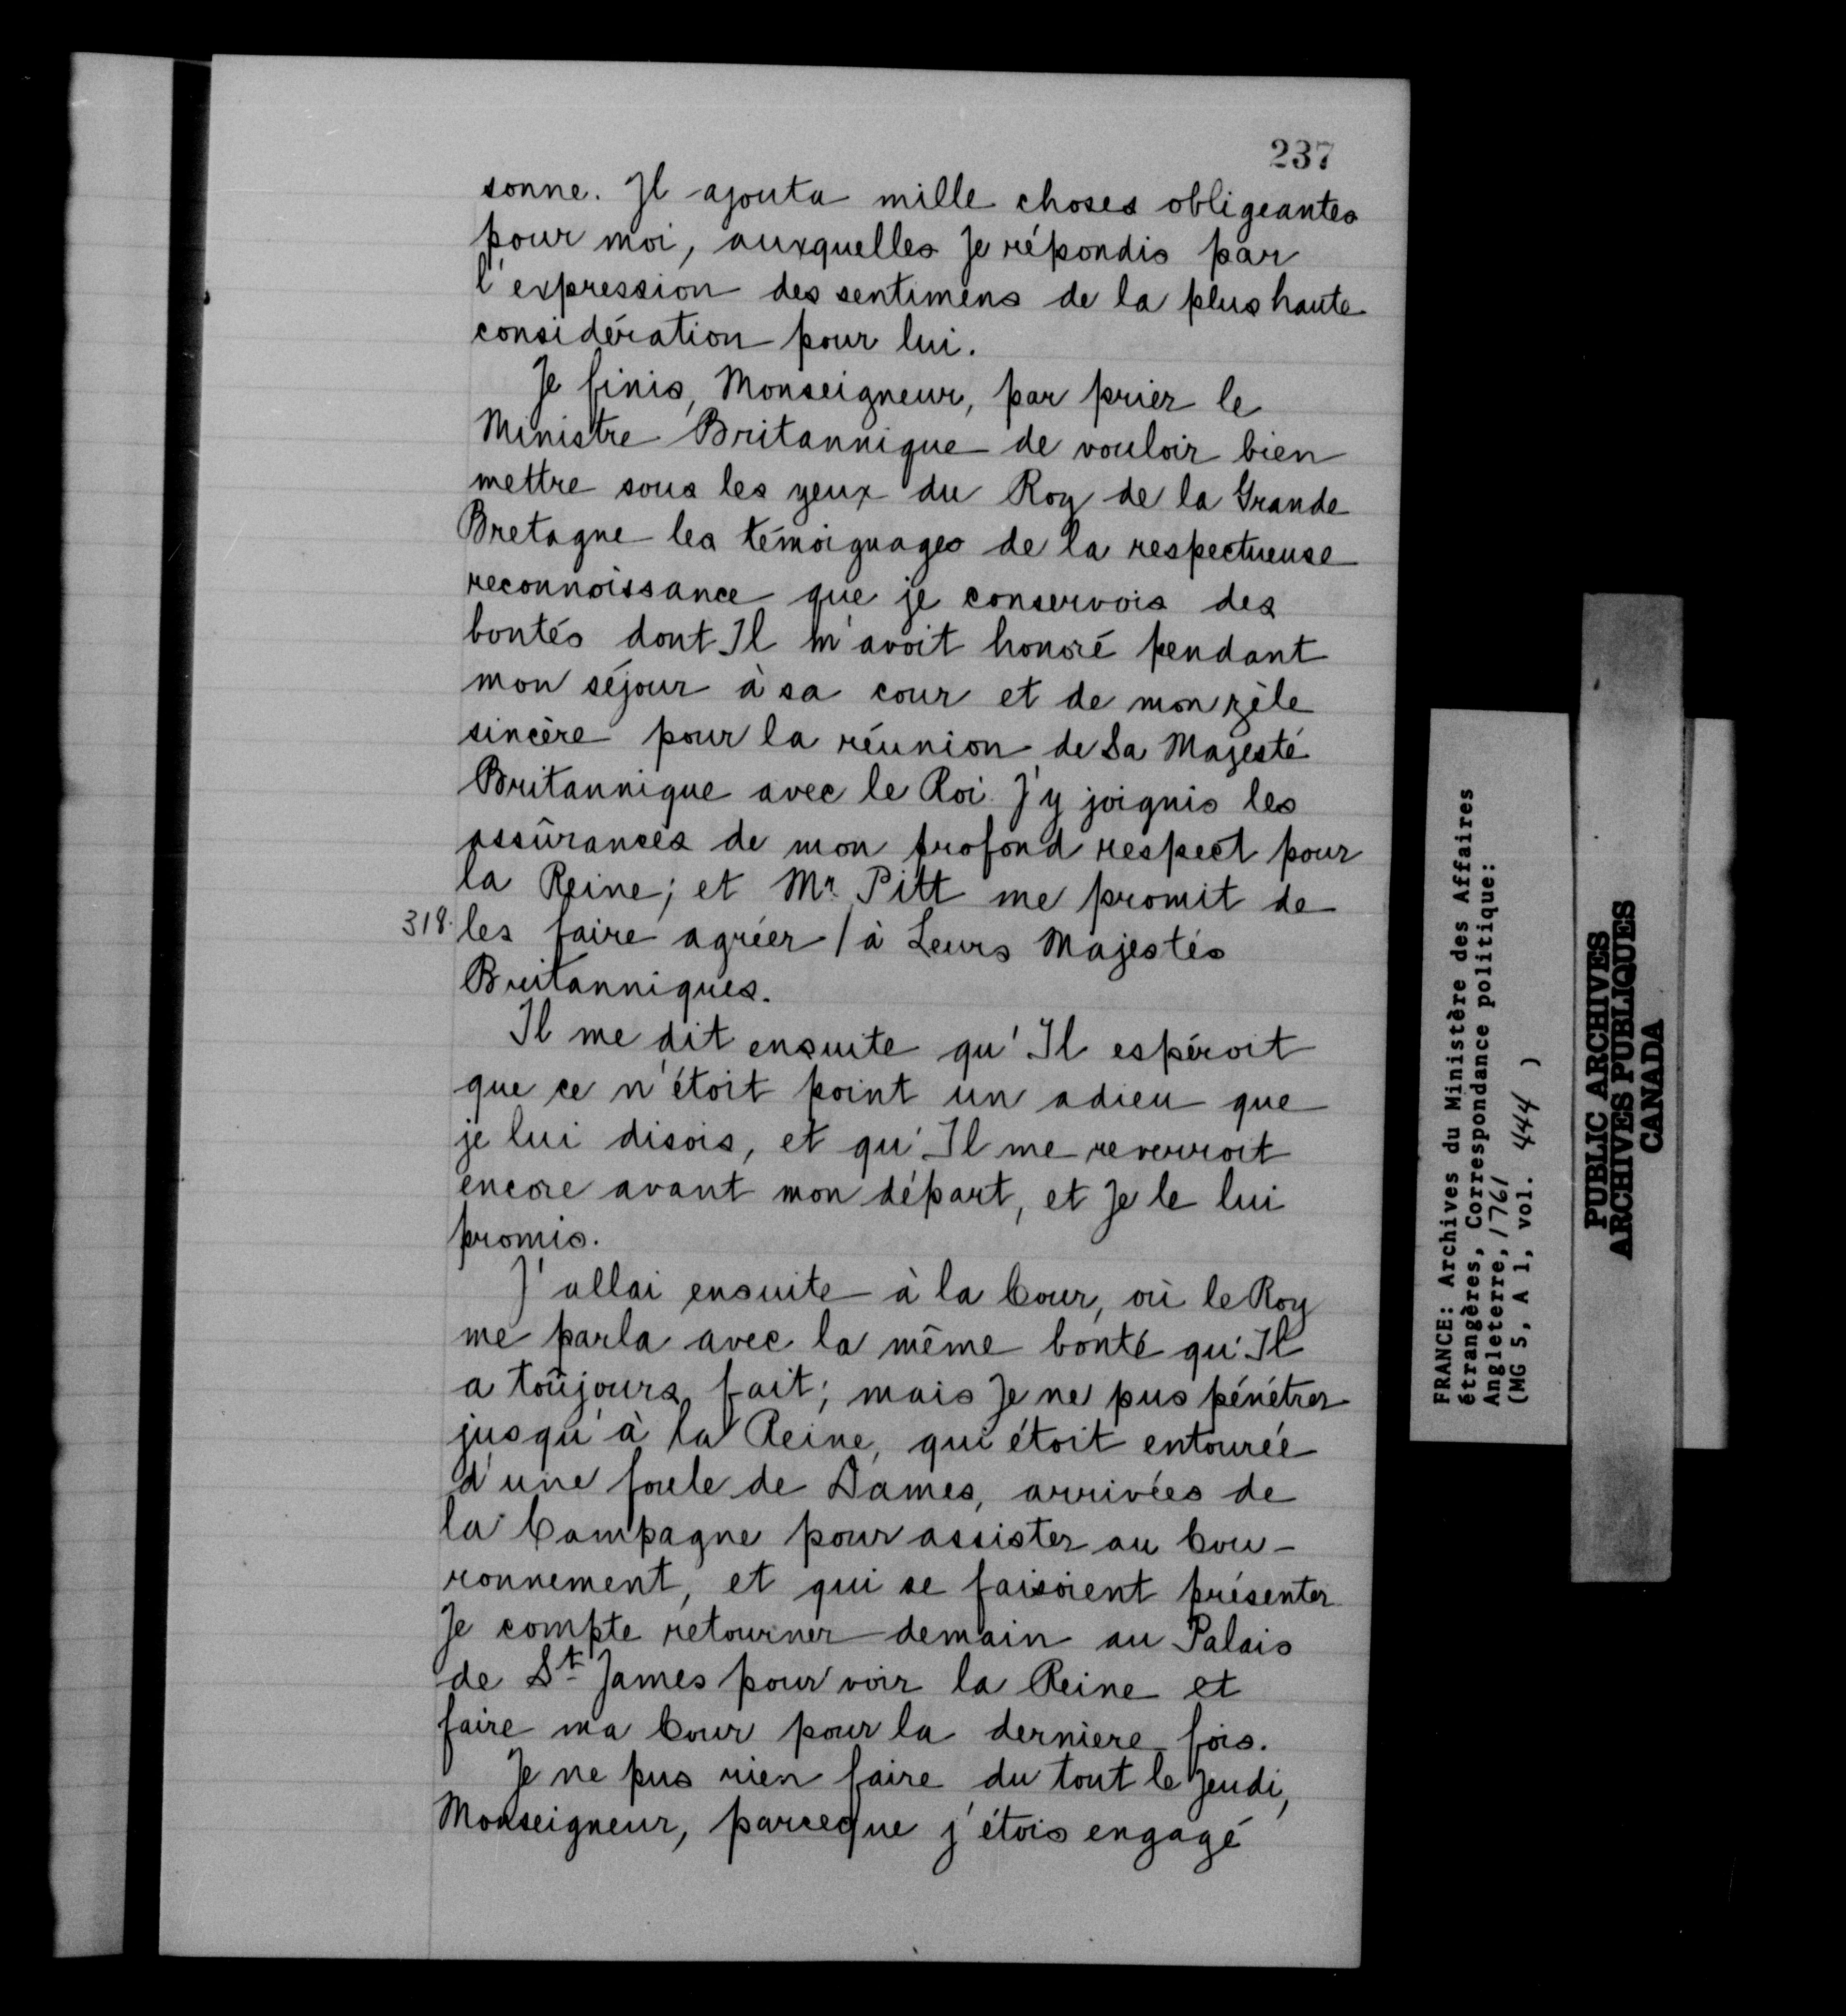 237
sonne. Il ajouta mille choses obligeantes
pour moi, auxquelles Je répondis par
l'expression des sentimens de la plus haute
considération pour lui.
Je finis, Monseigneur, par prier le
Ministre Britannique de vouloir bien
mettre sous les yeux du Roy de la Grande
Bretagne les témoignages de la respectueuse
reconnoissance que je conservois des
bontés dont Il m'avoit honoré pendant
mon séjour à sa cour et de mon zèle
sincère pour la réunion de Sa Majesté
Britannique avec le Roi. J'y joignis les
assûrances de mon profond respect pour
la Reine; et Mr. Pitt me promit de
318. les faire agréer / à Leurs Majestés
Britanniques.
Il me dit ensuite qu'Il espéroit
que ce n'étoit point un adieu que
je lui disois, et qu'Il me reverroit
encore avant mon départ, et Je le lui
promis.
J'allai ensuite à la Cour, où le Roy
me parla avec la même bonté qu'Il
a toûjours fait; mais Je ne pus pénétrer
jusqu'à la Reine, qui étoit entourée
d'une foule de Dames, arrivées de
la Campagne pour assister au Cou-
ronnement, et qui se faisoient présenter.
Je compte retourner demain au Palais
de St. James pour voir la Reine et
faire ma Cour pour la derniere fois.
Je ne pus rien faire du tout le Jeudi,
Monseigneur, parceque j'étois engagé
FRANCE: Archives du Ministère des Affaires
étrangères, Correspondance politique:
Angleterre, 1761
(MG 5, A 1, vol. 444 )
PUBLIC ARCHIVES
ARCHIVES PUBLIQUES
CANADA